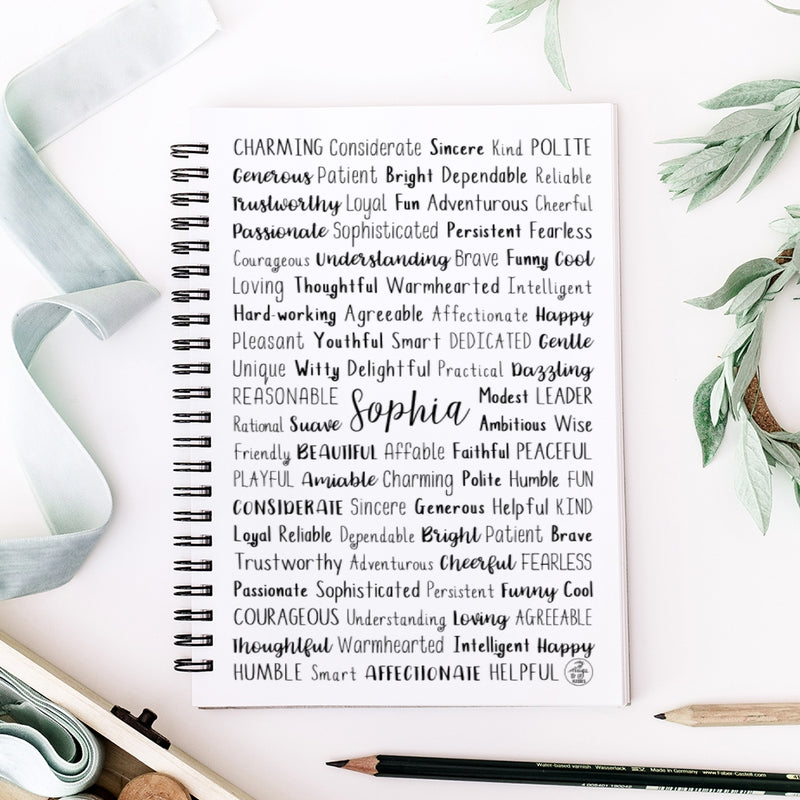 CHARMING Considerate Sincere Kind POLITE
Generous Patient Bright Dependable Reliable
Trustworthy Loyal Fun Adventurous Cheerful
Passionate Sophisticated Persistent Fearless
Courageous Understanding Brave Funny Cool
Loving Thoughtful Warmhearted Intelligent
Hard-working Agreeable Affectionate Happy
Pleasant Youthful Smart DEDICATED Gentle
Unique Witty Delightful Practical Dazzling
REASONABLE Modest LEADER
Sophia
Rational Suave Ambitious Wise
Friendly BEAUTIFUL Affable Faithful PEACEFUL
PLAYFUL Amiable Charming Polite Humble FUN
CONSIDERATE Sincere Generous Helpful KIND
Loyal Reliable Dependable Bright Patient Brave
Trustworthy Adventurous Cheerful FEARLESS
Passionate Sophisticated Persistent Funny Cool
COURAGEOUS Understanding Loving AGREEABLE
Thoughtful Warmhearted Intelligent Happy
HUMBLE Smart AFFECTIONATE HELPFUL
Water-based varnish Wasserlack Made in Germany www.Faber-Castell.com